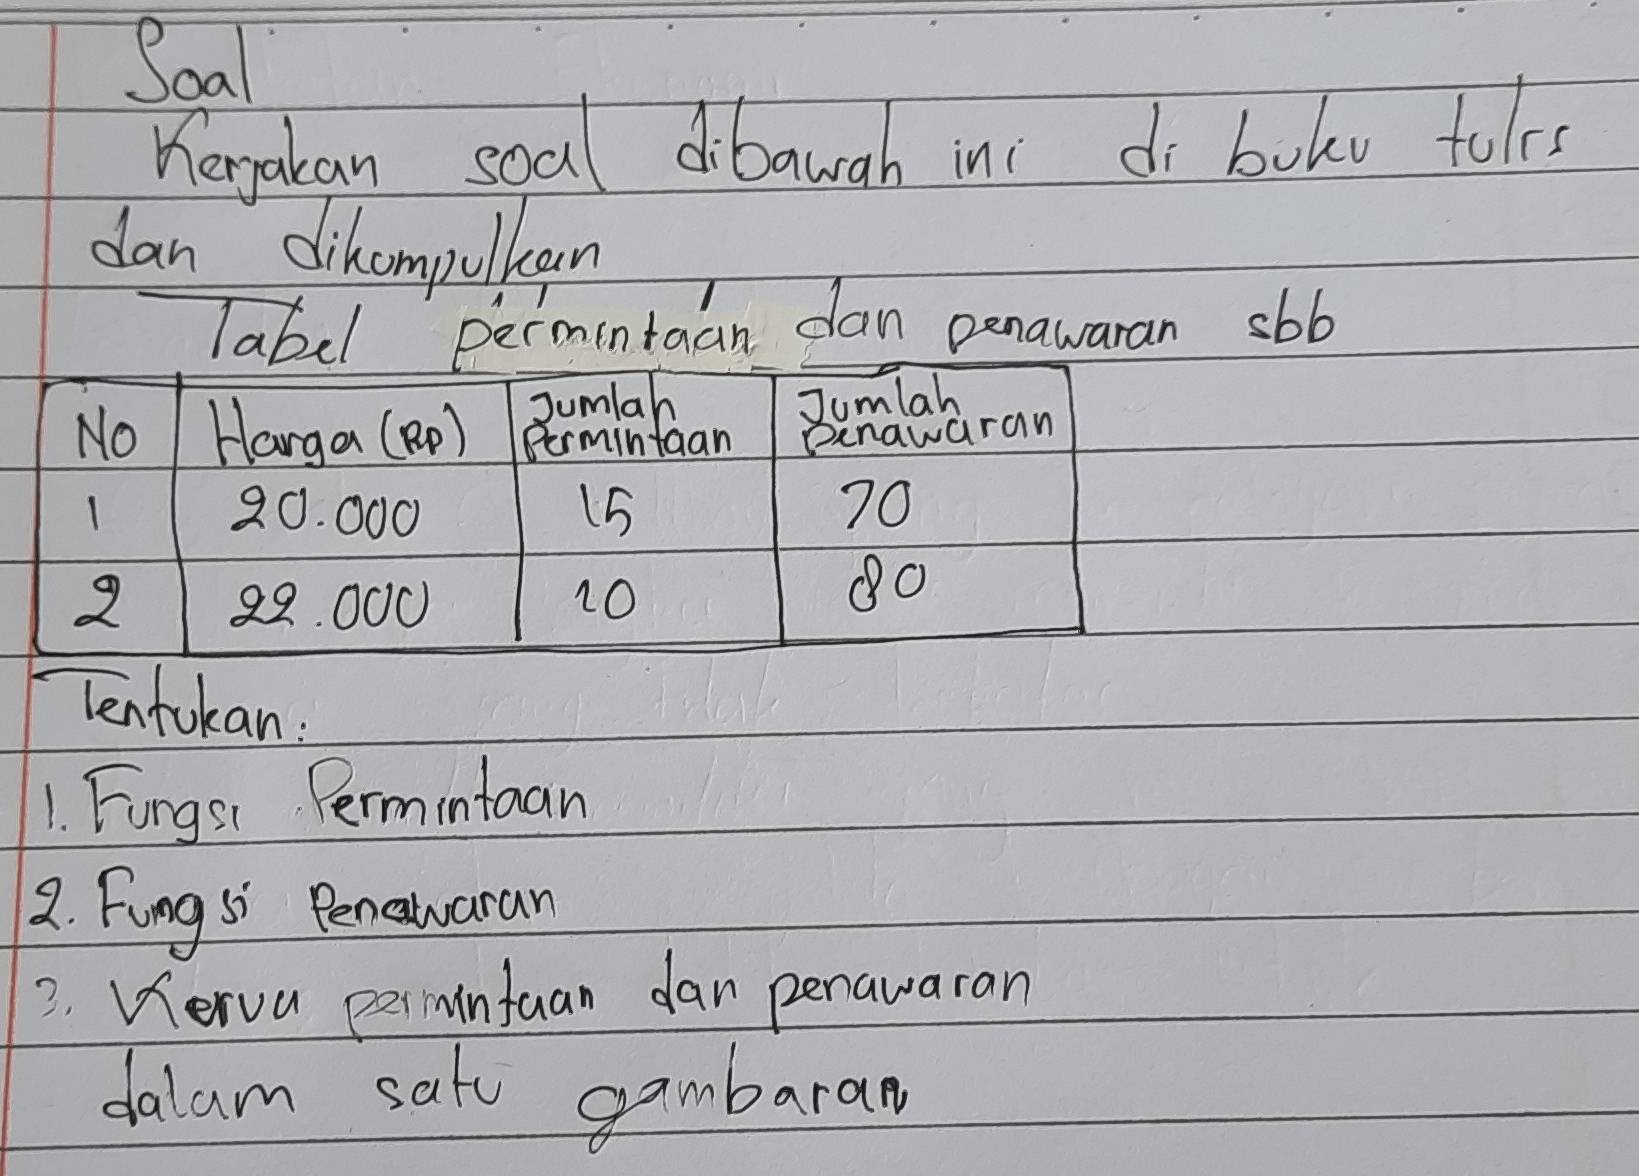 Soal
Kerjakan soal dibawah ini di buku tulis
dan dikumpulkan
Tabel permintaan dan penawaran sbb
No Harga (Rp) Jumlah Permintaan Jumlah Penawaran
1 20.000 15 70
2 22.000 10 80
Tentukan:
1. Fungsi Permintaan
2. Fungsi Penawaran
3. Kerva permintaan dan penawaran
dalam satu gambaran